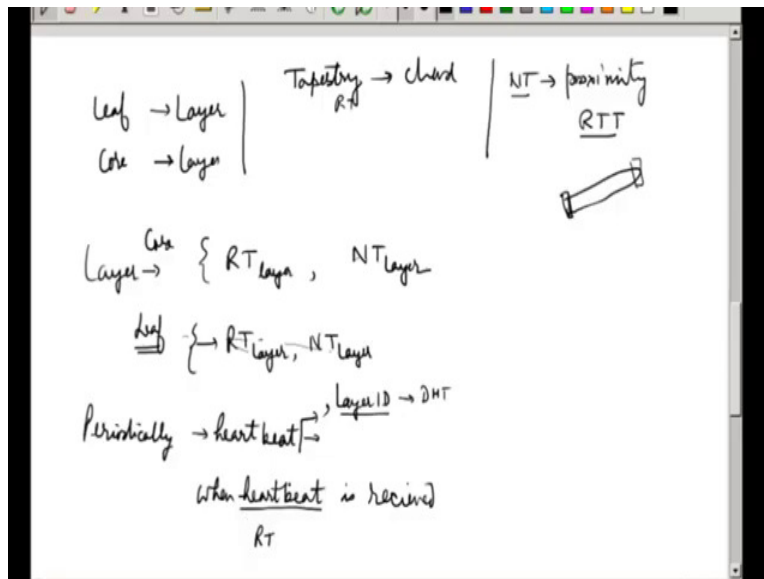 Leaf → Layer
Core → Layer
Tapestry → chord
RT
NT → proximity
RTT
Layer → Core { RT Layer , NT Layer
Leaf { → RT Layer, NT Layer
Periodically → heartbeat → , Layer ID → DHT
when heartbeat is recieved
RT